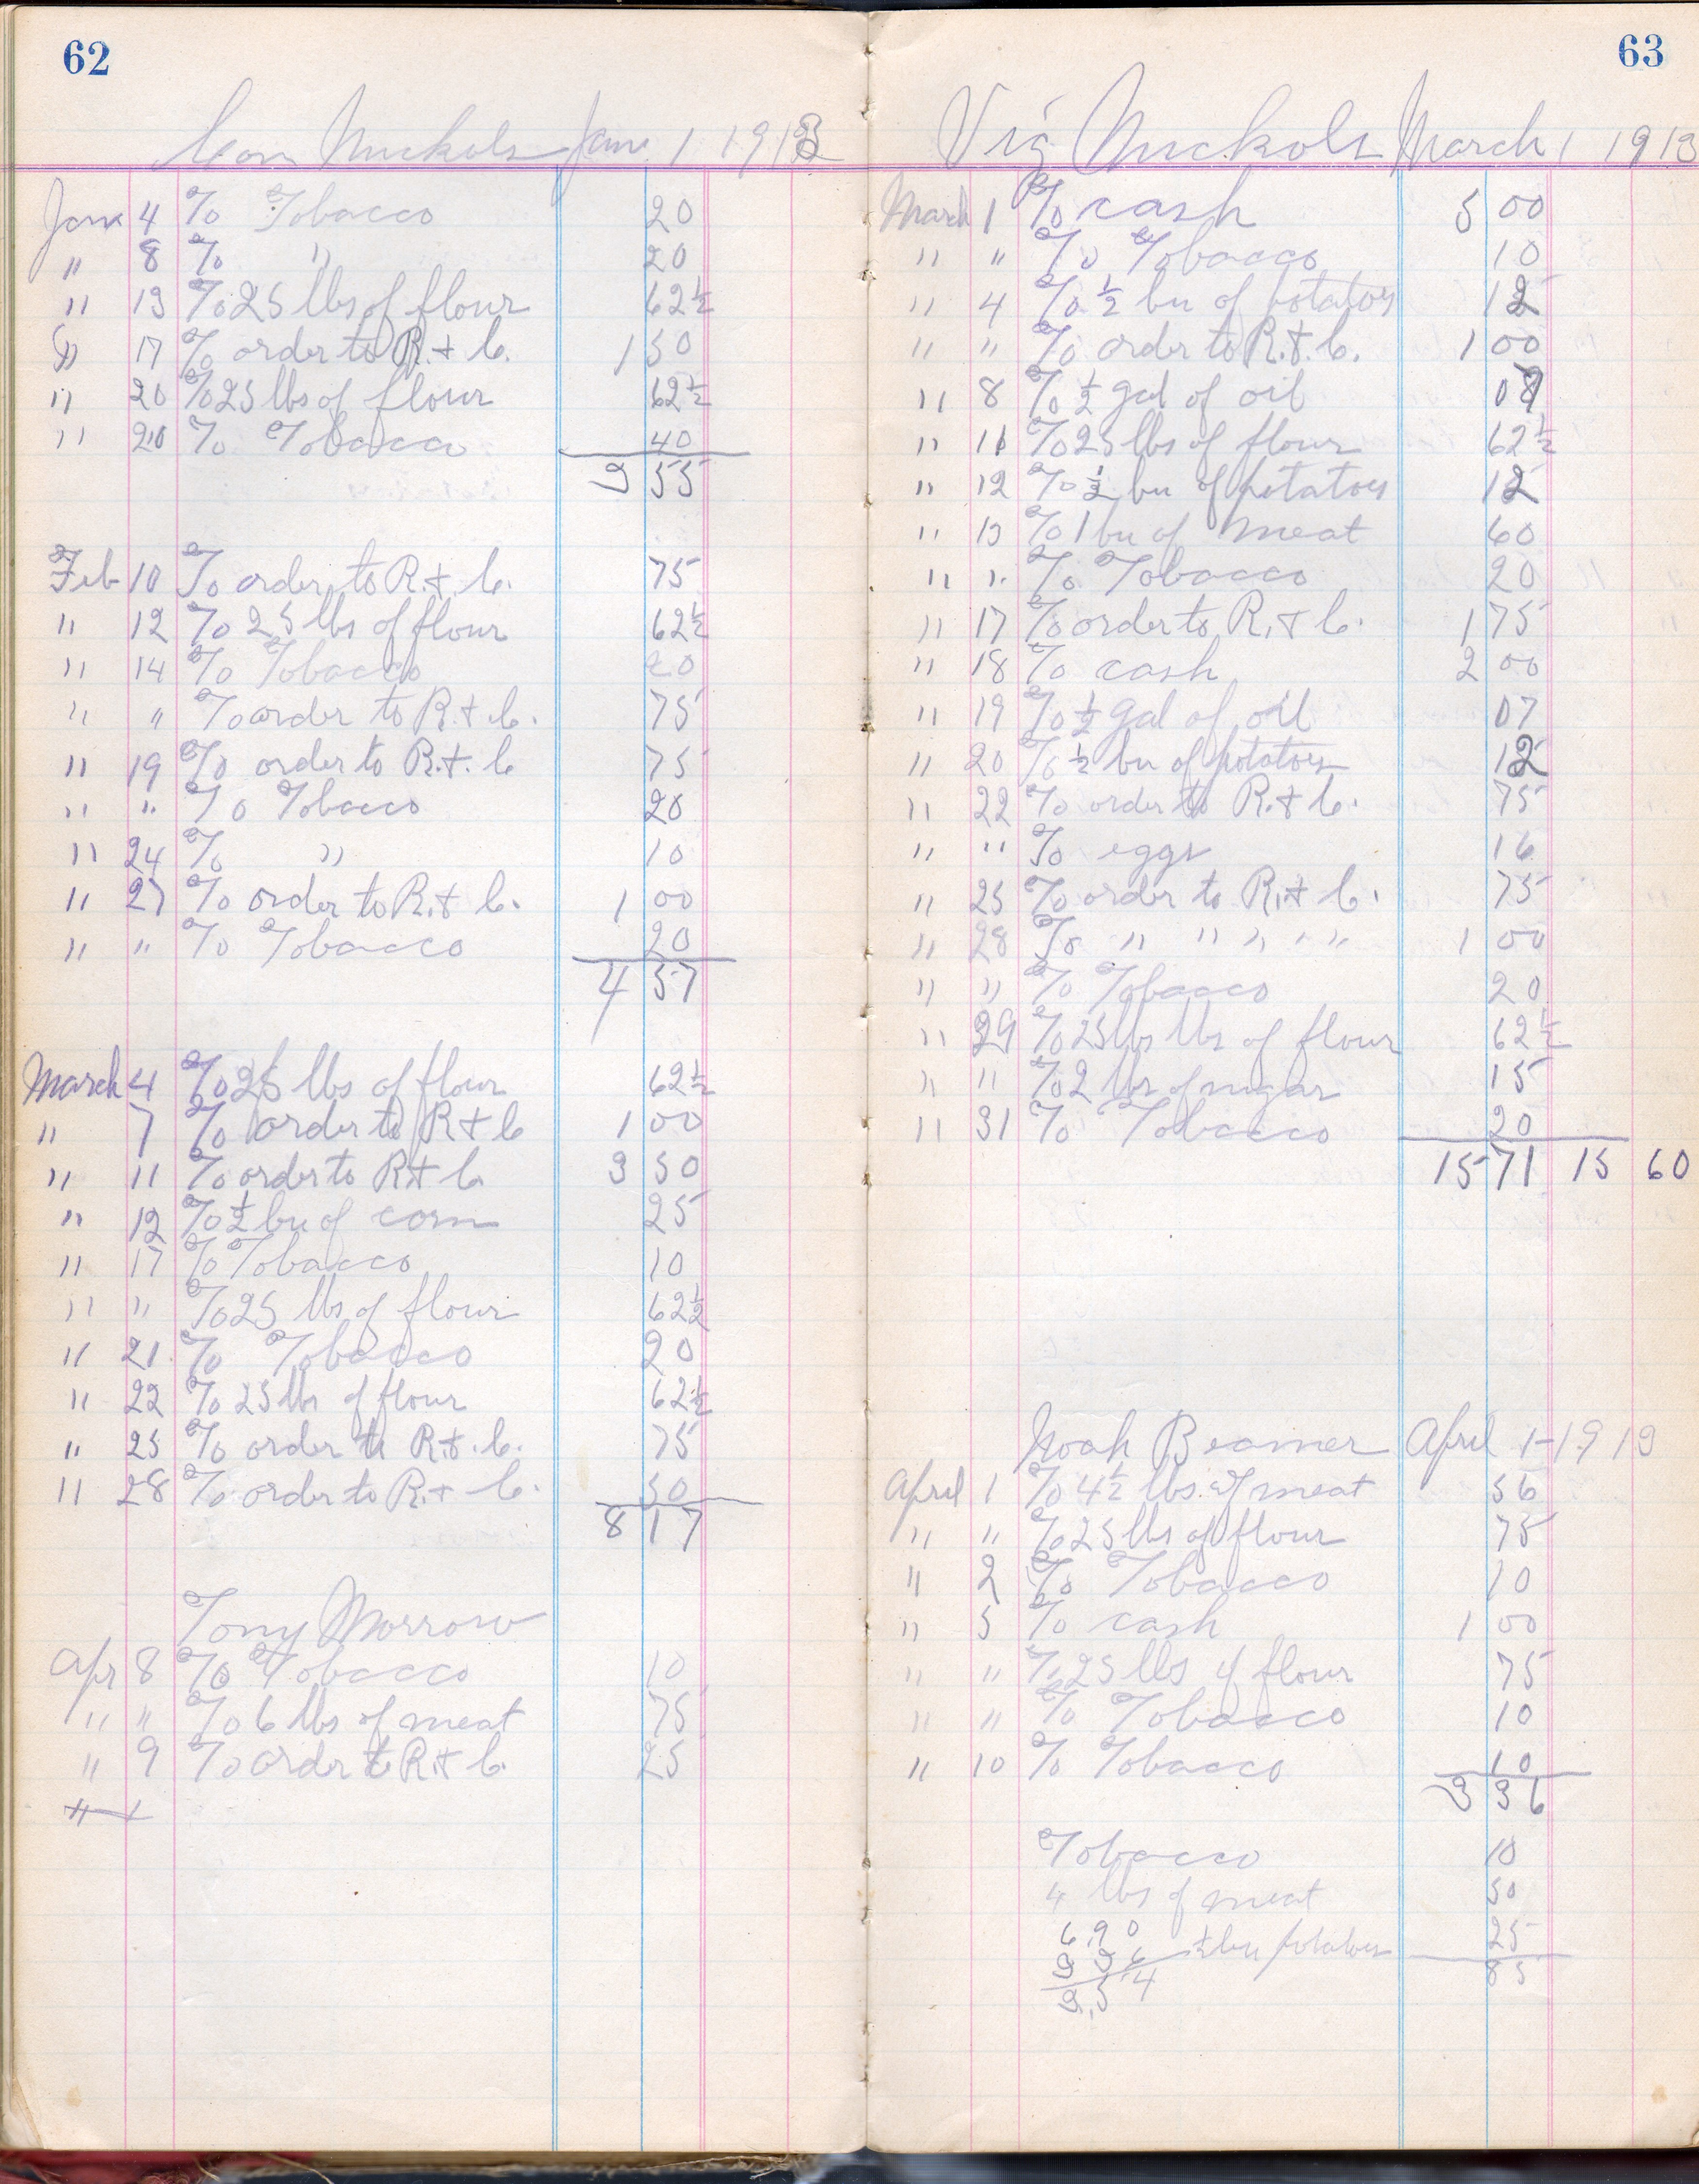 62
Con Nuckols Jan. 1 1913
Jan 4 To Tobacco 20
" 8 To " 20
" 13 To 25 lbs of flour 62½
" 17 To order to R. & C. 1 50
" 20 To 25 lbs of flour 62½
" 20 To Tobacco 40
3 55
Feb 10 To order to R. & C. 75
" 12 To 25 lbs of flour 62½
" 14 To Tobacco 20
" " To order to R. & C. 75
" 19 To order to R. & C 75
" " To Tobacco 20
" 24 To " 10
" 27 To order to R. & C. 1 00
" " To Tobacco 20
4 57
March 4 To 25 lbs of flour 62½
" 7 To order to R & C 1 00
" 11 To order to R & C 3 50
" 12 To ½ bu of corn 25
" 17 To Tobacco 10
" " To 25 lbs of flour 62½
" 21 To Tobacco 20
" 22 To 25 lbs of flour 62½
" 25 To order to R. & C. 75
" 28 To order to R. & C. 50
8 17
Tony Morrow
Apr 8 To Tobacco 10
" " To 6 lbs of meat 75
" 9 To order to R. & C. 25
"
63
Vig Nuckols March 1 1913
March 1 To cash 5 00
" " To Tobacco 10
" 4 To ½ bu of potatoes 12
" " To order to R. & C. 1 00
" 8 To ½ gal of oil 07
" 11 To 25 lbs of flour 62½
" 12 To ½ bu of potatoes 12
" 13 To 1 bu of meat 60
" " To Tobacco 20
" 17 To order to R. & C. 1 75
" 18 To cash 2 00
" 19 To ½ gal of oil 07
" 20 To ½ bu of potatoes 12
" 22 To order to R. & C. 75
" " To eggs 16
" 25 To order to R. & C. 75
" 28 To " " " " " 1 00
" " To Tobacco 20
" 29 To 25 lbs lbs of flour 62½
" " To 2 lbs of sugar 15
" 31 To Tobacco 20
15 71 15 60
Noah Beamer April 1-1913
April 1 To 4½ lbs of meat 56
" " To 25 lbs of flour 75
" 2 To Tobacco 10
" 5 To cash 1 00
" " To 25 lbs of flour 75
" " To Tobacco 10
" 10 To Tobacco 10
3 36
Tobacco 10
4 lbs of meat 50
6.90 ½ bu potatoes 25
3 36 85
3.54